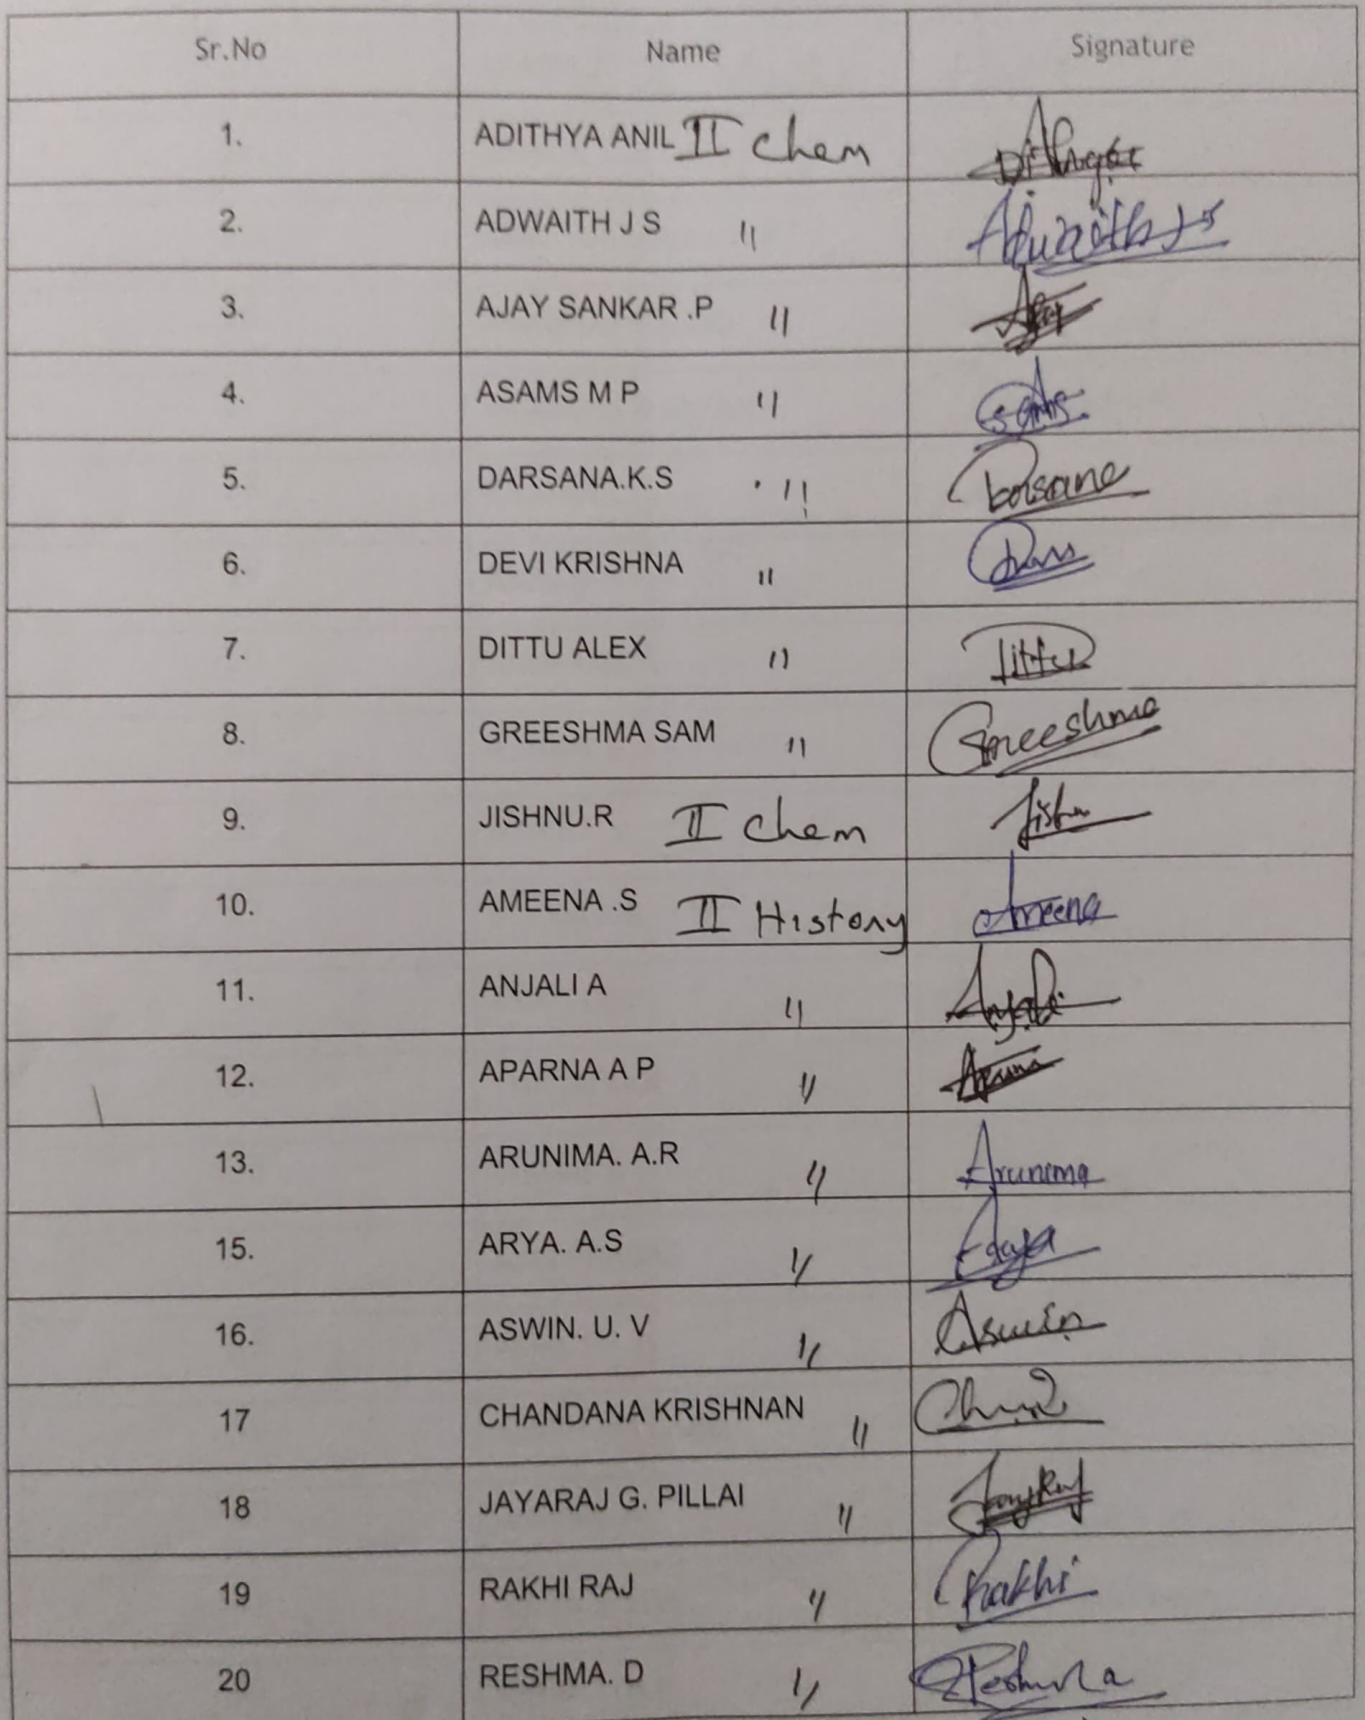 Sr.No Name Signature
1. ADITHYA ANIL II Chem
2. ADWAITH J S " Adwaith J S
3. AJAY SANKAR .P "
4. ASAMS M P "
5. DARSANA.K.S "
6. DEVI KRISHNA "
7. DITTU ALEX " Dittu
8. GREESHMA SAM " Greeshma
9. JISHNU.R II Chem Jishnu
10. AMEENA .S II History Ameena
11. ANJALI A " Anjali
12. APARNA A P "
13. ARUNIMA. A.R " Arunima
15. ARYA. A.S "
16. ASWIN. U. V " Aswin
17 CHANDANA KRISHNAN "
18 JAYARAJ G. PILLAI "
19 RAKHI RAJ " Rakhi
20 RESHMA. D " Reshma